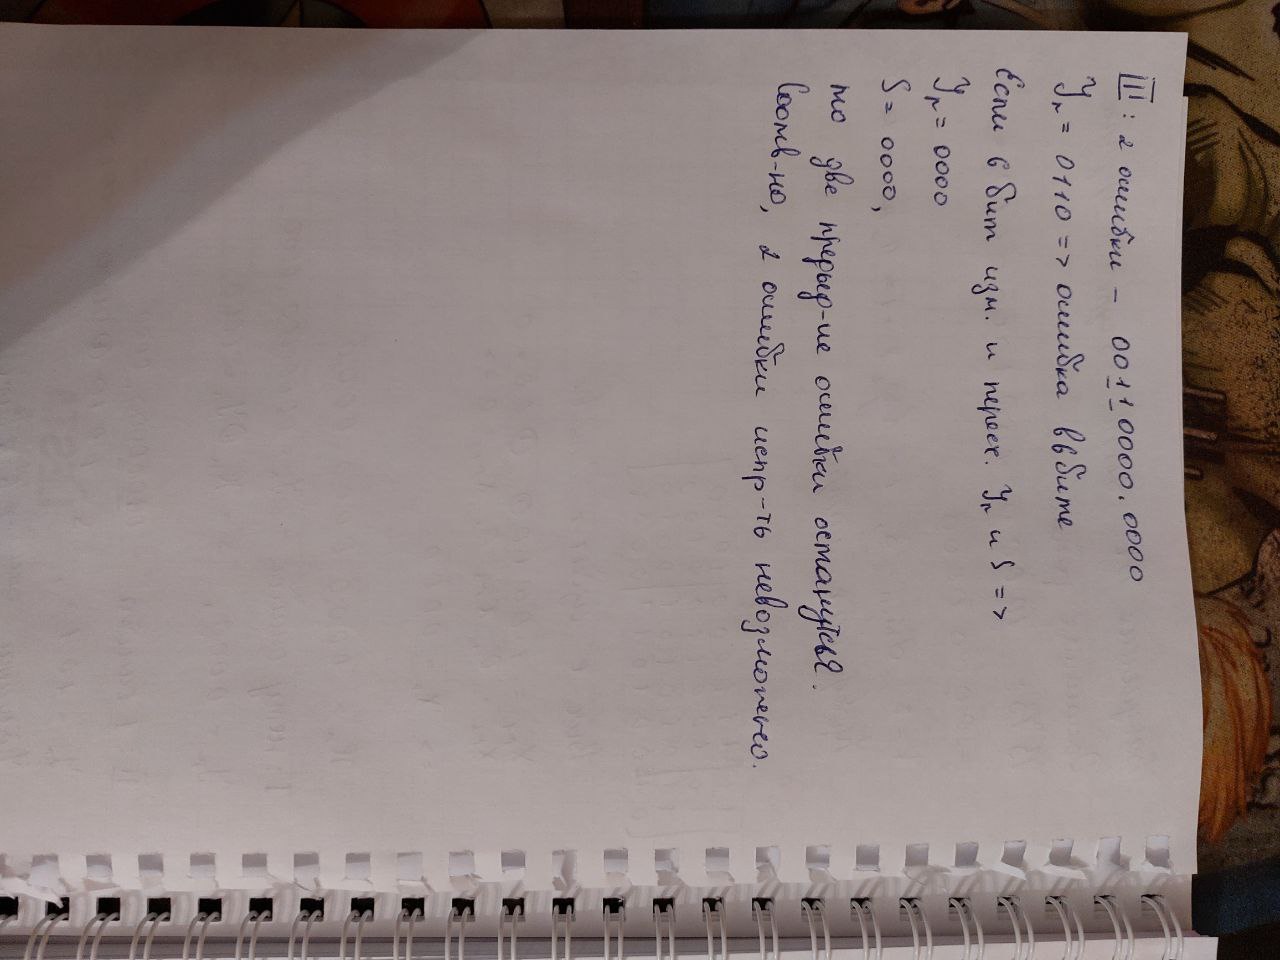 III: 2 ошибки – 00110000.0000
Yr = 0110 => ошибка в 6 бите
Если 6 бит изм. и перек. Yr и S =>
Yr = 0000
S = 0000,
то две предыд-ие ошибки останутся.
Соотв-но, 2 ошибки испр-ть невозможно.